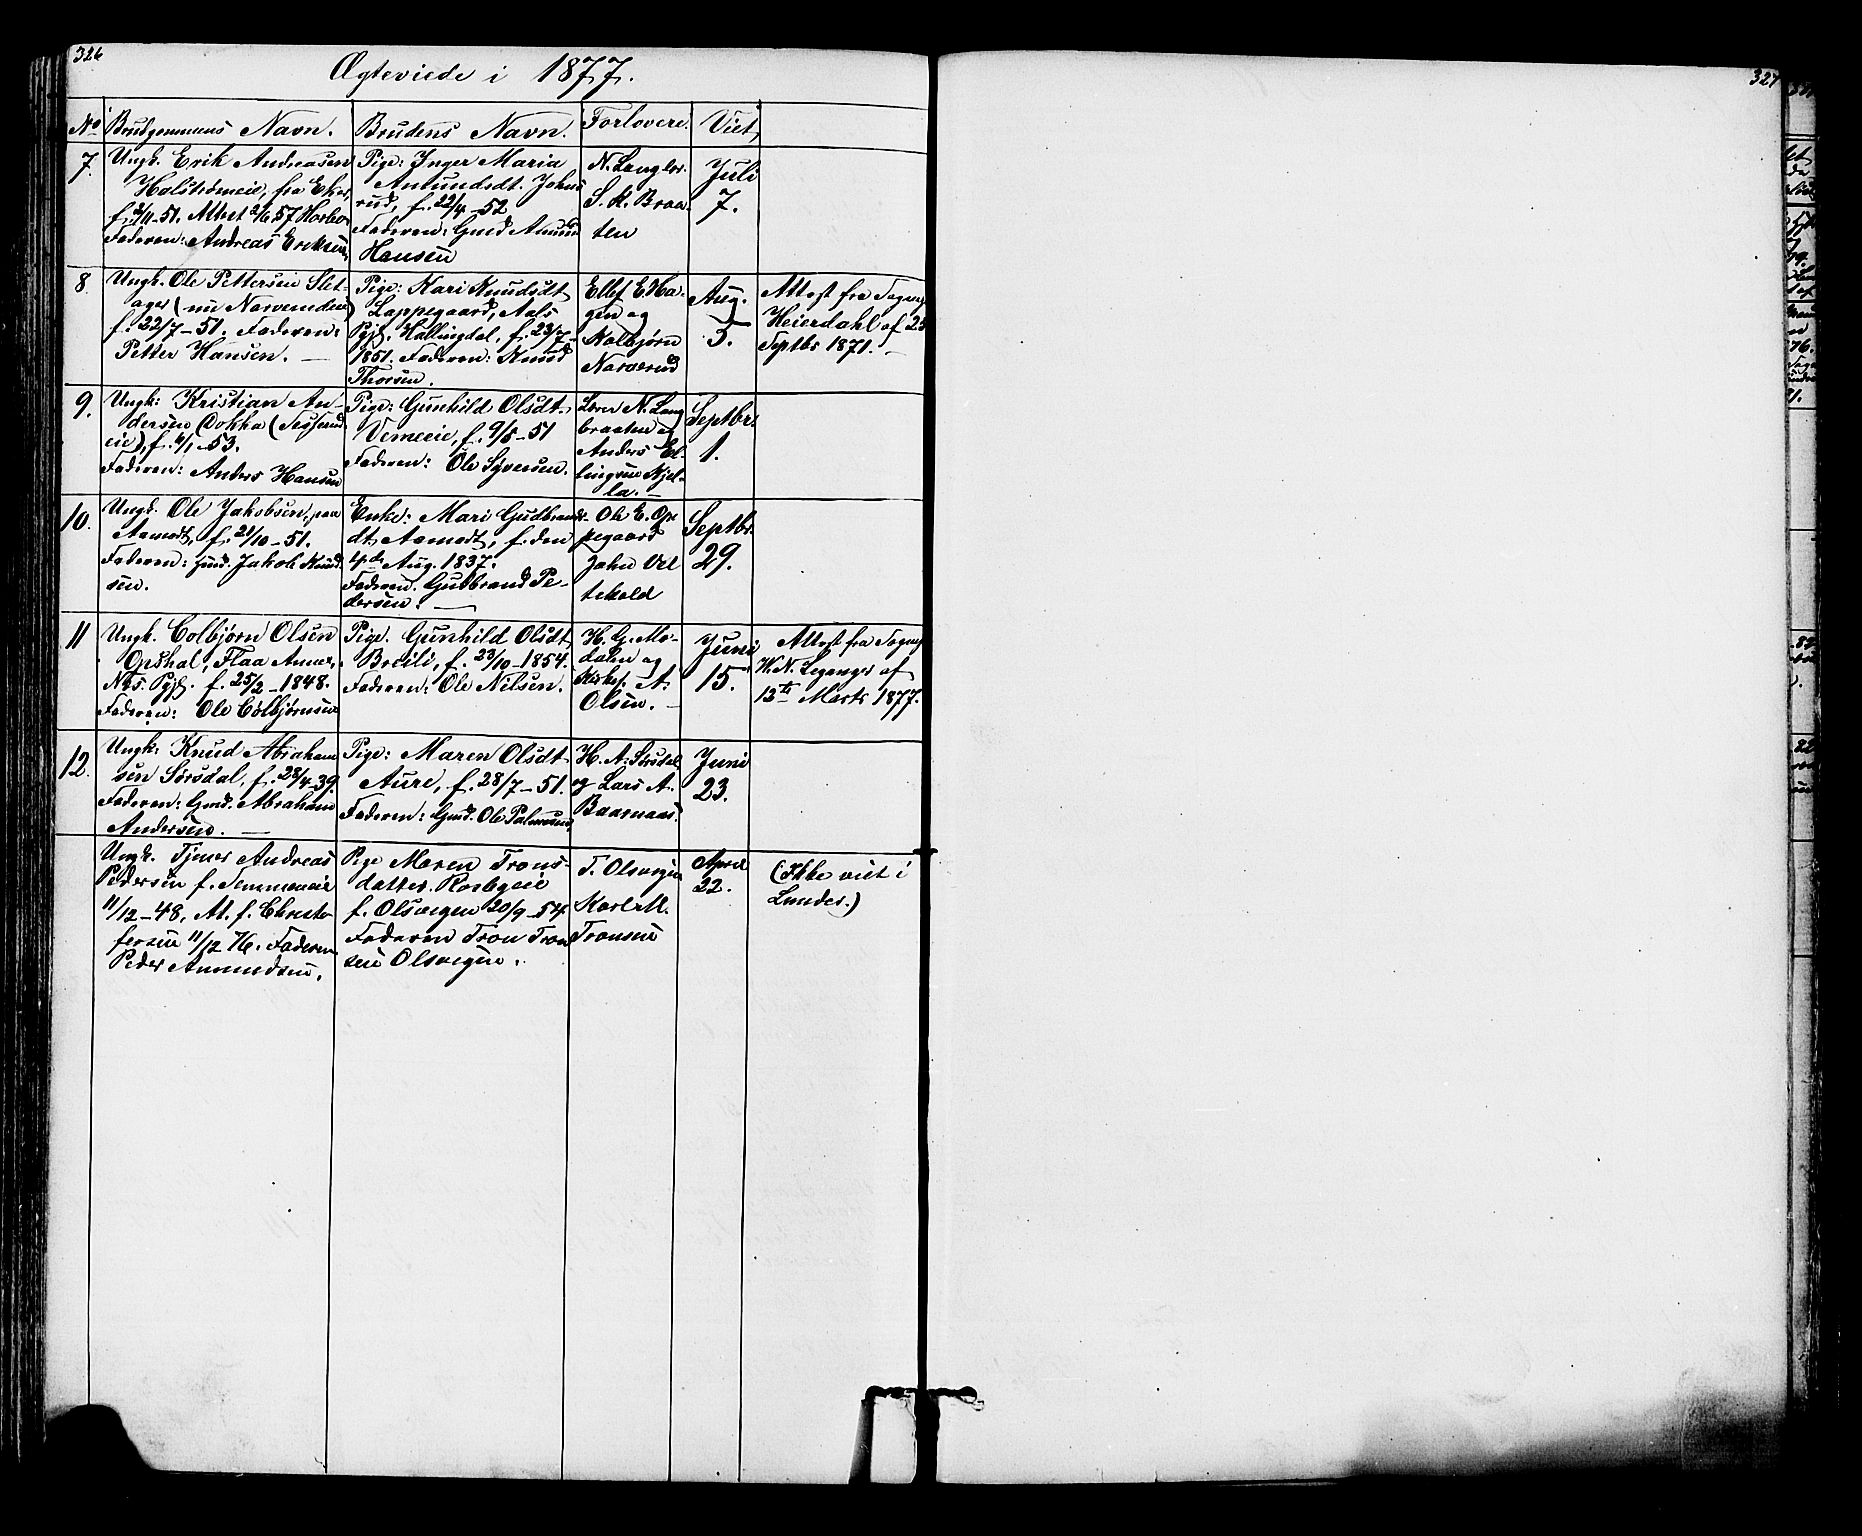 326
Ægteviede i 1877.
No Brudgommens Navn. Brudens Navn. Forlovere. Viet
7. Ungk. Erik Andreasen
Halstrømeie, fra Eker,
f. 51. Attest 57
Faderen: Andreas Eriksen
Pige: Inger Maria
Amundsdt. Johns
rud, f. 22/4-52
Faderen: Gmd Amund
Hansen
N. Langlrs.
S. K. Braa
ten
Juli
7.
8 Ungk. Ole Pettersen Slet-
ager (nu Narvemdeie)
f. 22/7-51. Faderen:
Petter Hansen.
Pige: Kari Knudsdt
Lappegaard, Aals
Pgjf. Hallingdal, f. 23/7-
1851. Faderen: Knud
Thorsen.
Ellef E. Ha-
gen og
Kolbjørn
Narverud
Aug.
5.
Attest fra Sognep
Heierdahl af 25
Septbr 1871.
9. Ungk: Kristian An-
dersen Dokka (
eie), f. 6/1-53.
Faderen: Anders Hansen
Pige: Gunhild Olsdt.
Vemeeie, f. 9/5-51
Faderen: Ole Syversen.
Lærer N. Lang
braaten og
Anders El-
lingsen Kjel-
la.
Septbr.
1.
10. Ungk. Ole Jakobsen, paa
Aamodt, f. 21/10-51.
Faderen: Gmd. Jakob Knud
sen.
Enke: Mari Gudbrands-
dt. Aamodt, f. den
4de Aug. 1837.
Faderen. Gudbrand Pe-
dersen.
Ole E. Op
pegaard
John Vel
tekold
Septbr.
29.
11 Ungk. Colbjørn Olsen
Opshal, Flaa Annex,
Næs. Pgjf. f. 25/2-1848.
Faderen: Ole Colbjørnsen
Pige. Gunhild Olsdt
Breili, f. 23/10-1854.
Faderen: Ole Nilsen.
H. G. Mo-
dalen og
Kirkes. A.
Olsen.
Juni
15.
Attest fra Sognep
W. N. Leganger af
13te Marts 1877.
12. Ungk: Knud Abraham
sen Sørsdal, f. 28/4-39.
Faderen: Gmd. Abraham
Andersen.
Pige: Maren Olsdt
Aure, f. 28/7-51.
Faderen: Gmd. Ole Palmesen
H. A.
og Lars A.
Baarnaas.
Juni
23.
Ungk. Tjener Andreas
Pedersen f. Temmeeie
11/12-48, At. f. Christo
fersen 11/12 76. Faderen
Peder Amundsen.
Pige Maren Trons-
datter. Rosbyeie
f. Olsvegen 20/9-54
Faderen Tron Tron
sen Olsvegen.
T. Olsvegen
Karl M.
Tronsen
April
22.
(Ikke viet i
Lunder.)
327